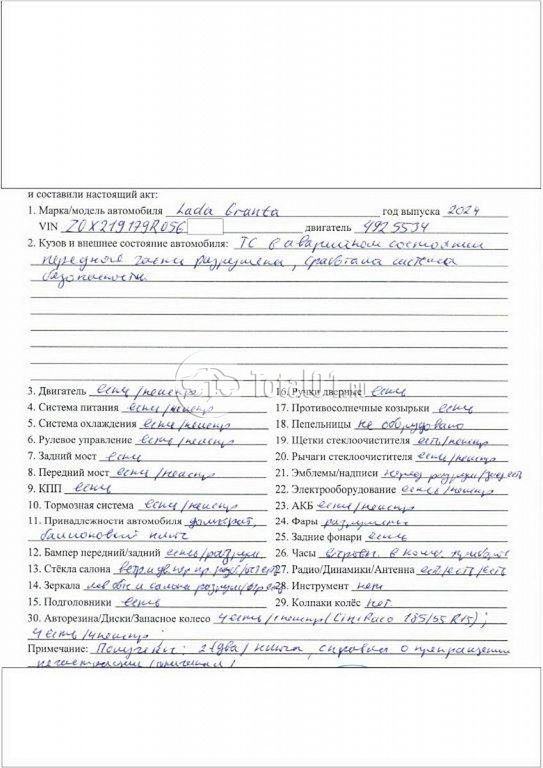 и составили настоящий акт:
1. Марка/модель автомобиля Lada Granta год выпуска 2024
VIN Z0X219179R056 двигатель 4925534
2. Кузов и внешнее состояние автомобиля: ТС в аварийном состоянии
передней части разрушена, сработала система
безопасности
Total01.ru
3. Двигатель есть/неиспр 16. Ручки дверные есть
4. Система питания есть/неиспр 17. Противосолнечные козырьки есть
5. Система охлаждения есть/неиспр 18. Пепельницы не оборудовано
6. Рулевое управление есть/неиспр 19. Щетки стеклоочистителя есть/неиспр
7. Задний мост есть 20. Рычаги стеклоочистителя есть/неиспр
8. Передний мост есть/неиспр 21. Эмблемы/надписи перед разруш
9. КПП есть 22. Электрооборудование есть/неиспр
10. Тормозная система есть/неиспр 23. АКБ есть/неиспр
11. Принадлежности автомобиля домкрат, 24. Фары разрушены
баллонный ключ 25. Задние фонари есть
12. Бампер передний/задний есть/разруш 26. Часы встроен. в комб. приборов
13. Стёкла салона 27. Радио/Динамики/Антенна есть/есть/есть
14. Зеркала лев обе и салона разруш 28. Инструмент нет
15. Подголовники есть 29. Колпаки колёс нет
30. Авторезина/Диски/Запасное колесо 4 есть/1 неиспр 185/55 R15);
4 есть/4 неиспр;
Примечание: Получены: 2(два) ключа, справка о прекращении